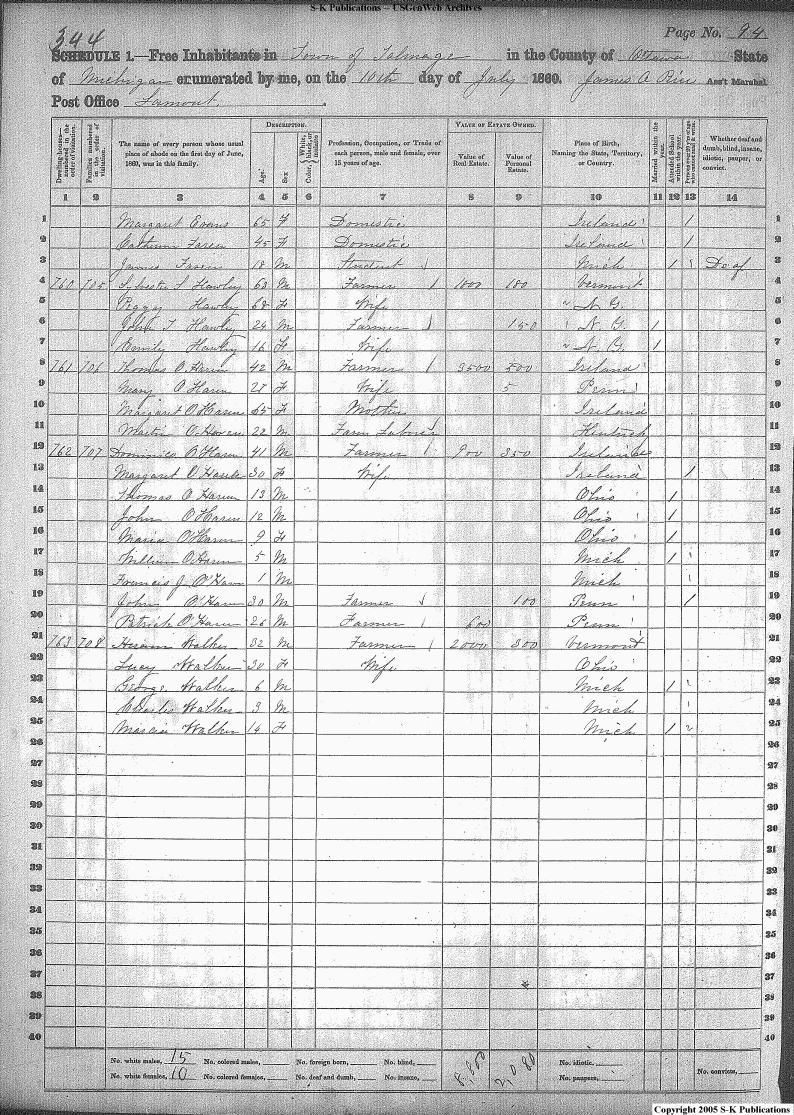 S-K Publications – USGenWeb Archives
344
Page No. 94
SCHEDULE 1.—Free Inhabitants in Town of Talmage in the County of Ottawa State
of Michigan enumerated by me, on the 10th day of July 1860. James A Rice Ass't Marshal
Post Office Lamont.
Dwelling-houses—numbered in the order of visitation.
Families numbered in the order of visitation.
The name of every person whose usual place of abode on the first day of June, 1860, was in this family.
DESCRIPTION.
Age.
Sex
Color, White, black, or mulatto
Profession, Occupation, or Trade of each person, male and female, over 15 years of age.
VALUE OF ESTATE OWNED.
Value of Real Estate.
Value of Personal Estate.
Place of Birth, Naming the State, Territory, or Country.
Married within the year.
Attended School within the year.
Persons over 20 y'rs of age who cannot read & write.
Whether deaf and dumb, blind, insane, idiotic, pauper, or convict.
1 2 3 4 5 6 7 8 9 10 11 12 13 14
1 Margaret Evans 65 F Domestic Ireland / 1
2 Catherine 45 F Domestic Ireland / 2
3 James 18 M Student Mich 1 Deaf 3
4 760 705 Sylvester Hawley 63 M Farmer 1 1000 180 Vermont 4
5 Peggy Hawley 68 F Wife " N. Y. 5
6 John T Hawley 24 M Farmer 150 N. Y. 1 6
7 Emily Hawley 16 F Wife " N. Y. 1 7
8 761 706 Thomas O.Haren 42 M Farmer 1 3500 500 Ireland 8
9 Mary O Haren 27 F Wife 5 Penn 9
10 Margaret O Haren 65 F Mother Ireland 10
11 Martin O.Haren 22 M Farm Laborer 11
12 762 707 Dominick O Haren 41 M Farmer 900 350 Ireland 12
13 Margaret O Haren 30 F Wife Ireland / 13
14 Thomas O Haren 13 M Ohio 1 14
15 John O'Haren 12 M Ohio 1 15
16 Maria O'Haren 9 F Ohio 1 16
17 William O'Haren 5 M Mich 1 17
18 Francis J. O'Haren 1 M Mich 18
19 John O'Haren 30 M Farmer 100 Penn / 19
20 Patrick O'Haren 26 M Farmer 600 Penn 20
21 763 708 Hiram Walker 32 M Farmer 1 2000 800 Vermont 21
22 Lucy Walker 30 F Wife Ohio 22
23 George Walker 6 M Mich 1 23
24 Charles Walker 3 M Mich 24
25 Marcia Walker 14 F Mich 1 25
26 26
27 27
28 28
29 29
30 30
31 31
32 32
33 33
34 34
35 35
36 36
37 37
38 38
39 39
40 40
No. white males, 15 No. colored males, No. foreign born, No. blind, 8,800 2,080 No. idiotic,
No. white females, 10 No. colored females, No. deaf and dumb, No. insane, No. paupers, No. convicts,
Copyright 2005 S-K Publications